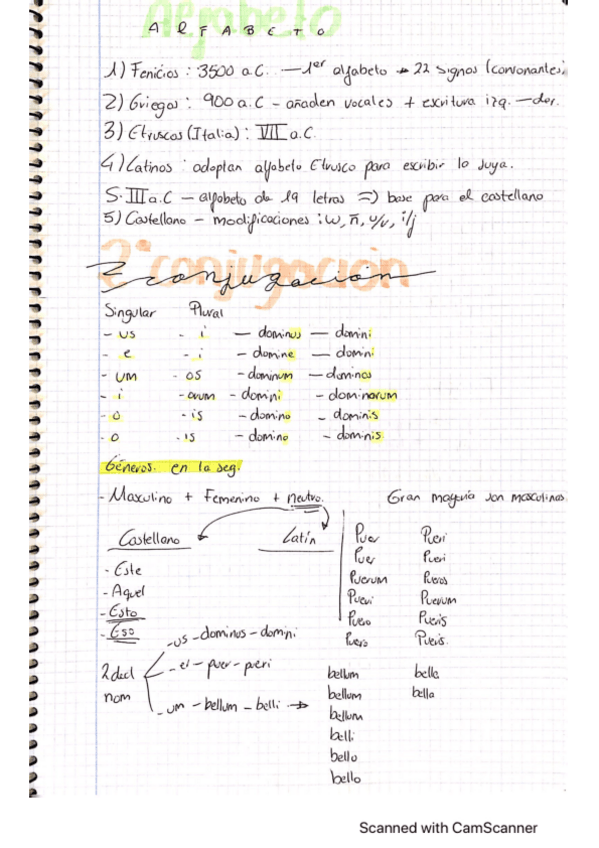 Alfabeto
ALFABETO
1) Fenicios : 3500 a.C. — 1er alfabeto → 22 signos (consonantes)
2) Griegos : 900 a.C - añaden vocales + escritura izq. — der.
3) Etruscos (Italia) : VII a.C.
4) Latinos : adoptan alfabeto Etrusco para escribir la suya.
S. III a.C — alfabeto de 19 letras => base para el castellano
5) Castellano - modificaciones : w, ñ, u/v, i/j
2ª conjugación
2 conjugación
Singular Plural
- us - i — dominus — domini
- e - i - domine — domini
- um - os - dominum — dominos
- i - orum - domini - dominorum
- o - is - domino - dominis
- o - is - domino - dominis
Géneros. en la seg.
- Masculino + Femenino + neutro. Gran mayoría son masculinos.
Castellano Latín
- Este
- Aquel
- Esto
- Eso
Puer Pueri
Puer Pueri
Puerum Pueros
Pueri Puerum
Puero Pueris
Puero Pueris.
2 decl
nom
- us - dominus - domini
- er - puer - pueri
- um - bellum - belli →
bellum bella
bellum bella
bellum
belli
bello
bello
Scanned with CamScanner